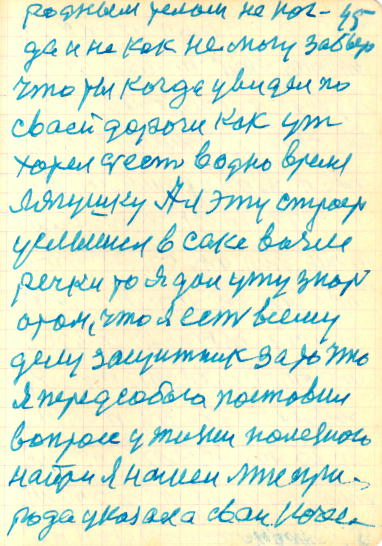 родным телом не ког- 45
да и не как не могу забыть
что мы когда увидели по
своей дороги как уж
хотел съесть в одно время
лягушку А я эту
услышел в саке возле
речки то я дал ужу знат
отом, что я есть всему
делу защитник за то что
я перед собою поставил
вопрос у жизни полезного
найти я нашел мне при-
рода указала свои